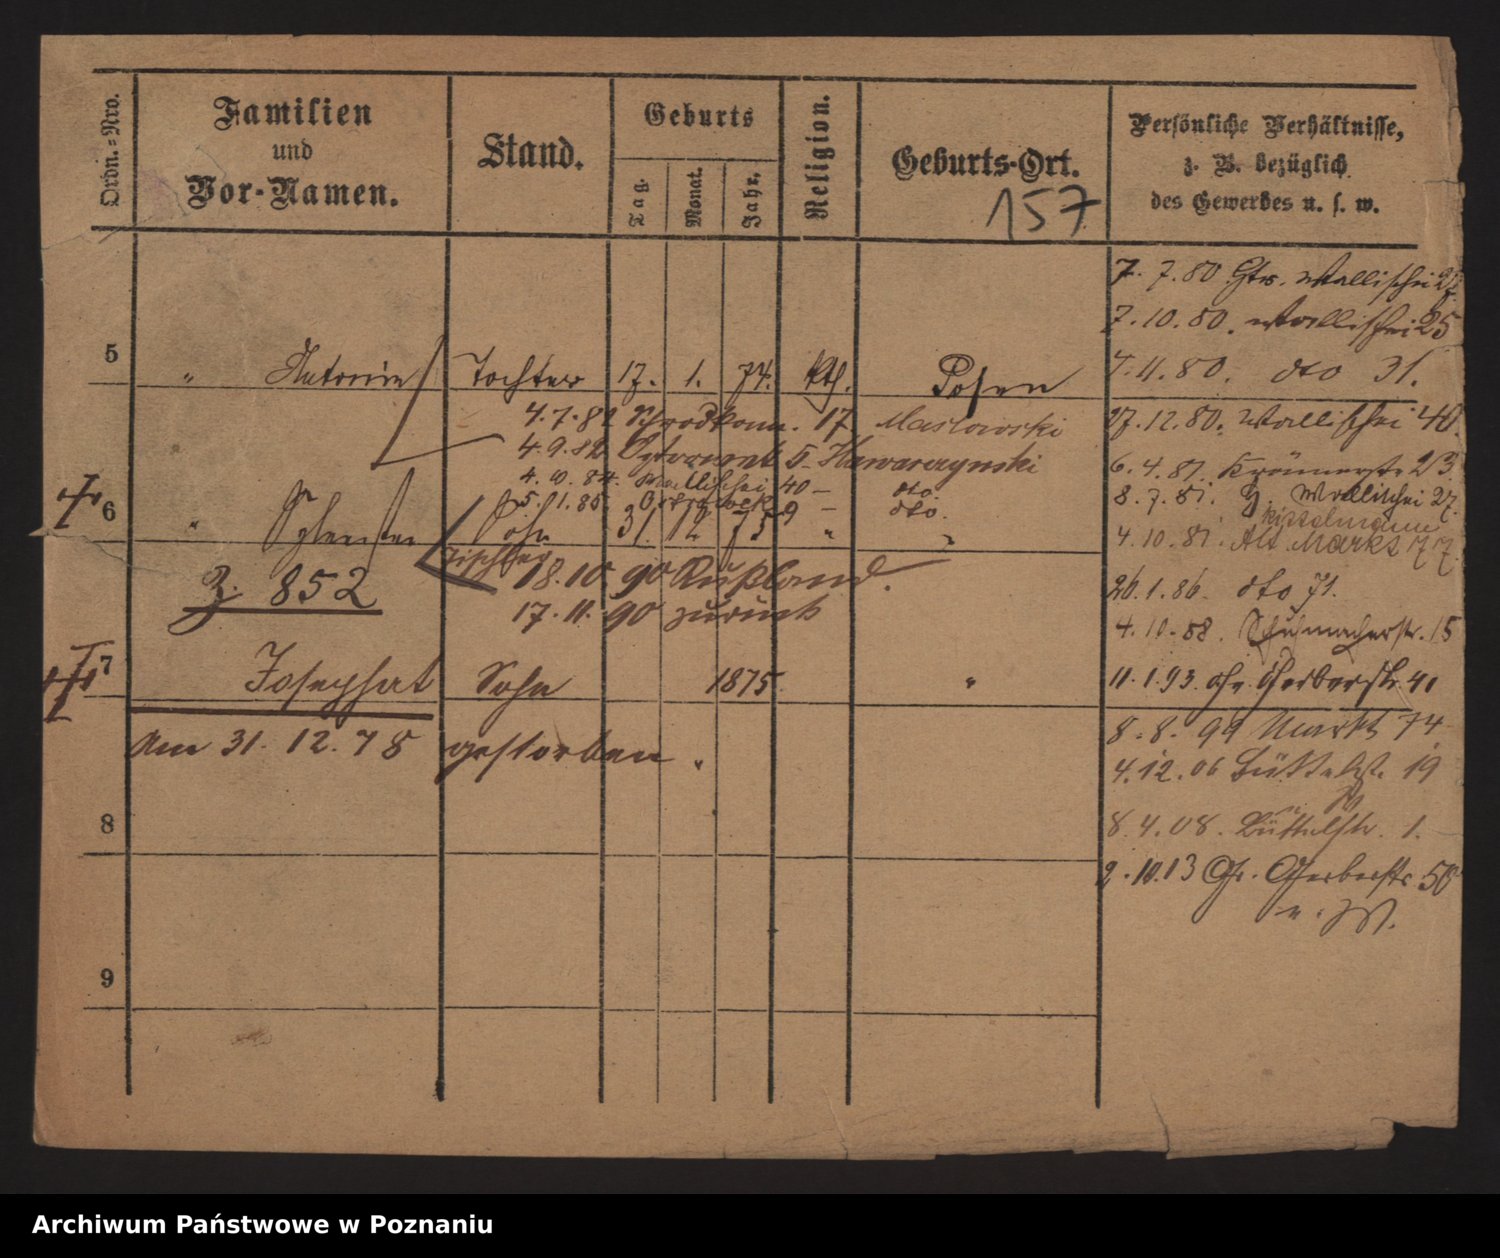 Ordn.-Nro.
Familien
und
Vor-Namen.
Stand.
Geburts
Tag.
Monat.
Jahr.
Religion.
Geburts-Ort.
157
Persönliche Verhältnisse,
z. B. bezüglich
des Gewerbes u. s. w.
7. 7. 80 Wallischei 27
7. 10. 80. Wallischei 25
5 " Antonie Tochter 17. 1. 74. kth. Posen
4. 11. 80. dto 31.
4. 7. 82 Schrodkam. 17 Maslowski
27. 12. 80. Wallischei 40
4. 9. 82 Ostrowek 5 - Hawarzynski
6. 4. 81. Krämerstr 23
4. 10. 84. Wallischei 40 - dto.
5. 1. 85. Ostrowek 9 - dto.
8. 7. 81. Wallischei 27.
6 " Sylvester Sohn 31. 12 75 " "
Kisselmann
4. 10. 81. Alt Markt 77.
Tischler
Z. 852
18. 10. 90 Rußland.
26. 1. 86. dto 71.
17. 11. 90 zurück
4. 10. 88. Schuhmacherstr. 15
7 Josephat Sohn 1875. "
11. 1. 93. Gr. Gerberstr. 41
Am 31. 12. 78 gestorben.
8. 8. 99 Markt 74
4. 12. 06 Büttelst. 19
8
8. 4. 08. Büttelstr. 1.
2. 10. 13 Gr. Gerberstr. 50
9
Archiwum Państwowe w Poznaniu